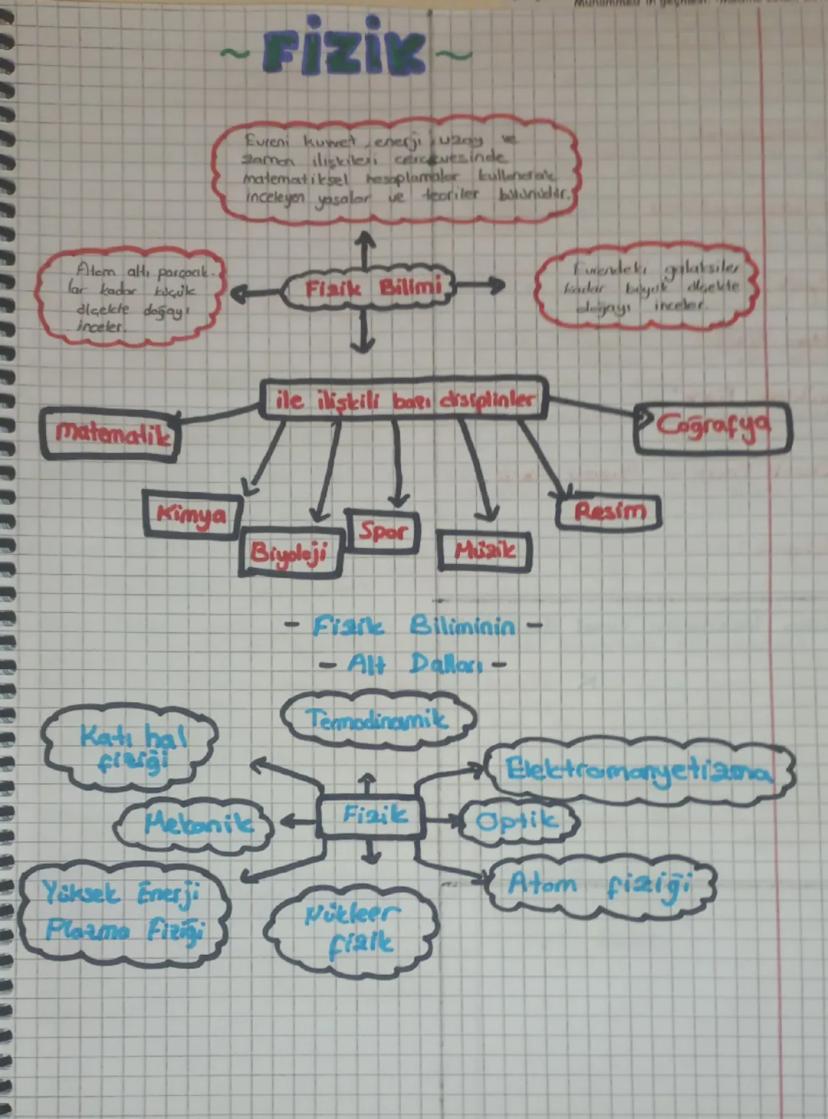 ~ FİZİK ~
Evreni kuvvet, enerji, uzay ve
zaman ilişkileri çerçevesinde
matematiksel hesaplamalar kullanarak
inceleyen yasalar ve teoriler bütünüdür.
Atom altı parçacık-
lar kadar küçük
ölçekte doğayı
inceler.
Fizik Bilimi
Evrendeki galaksiler
kadar büyük ölçekte
doğayı inceler.
ile ilişkili bazı disiplinler
Matematik
Coğrafya
Kimya
Biyoloji
Spor
Müzik
Resim
- Fizik Biliminin -
- Alt Dalları -
Termodinamik
Katı hal
fiziği
Elektromanyetizma
Mekanik
Fizik
Optik
Yüksek Enerji
Plazma Fiziği
Nükleer
fizik
Atom fiziği